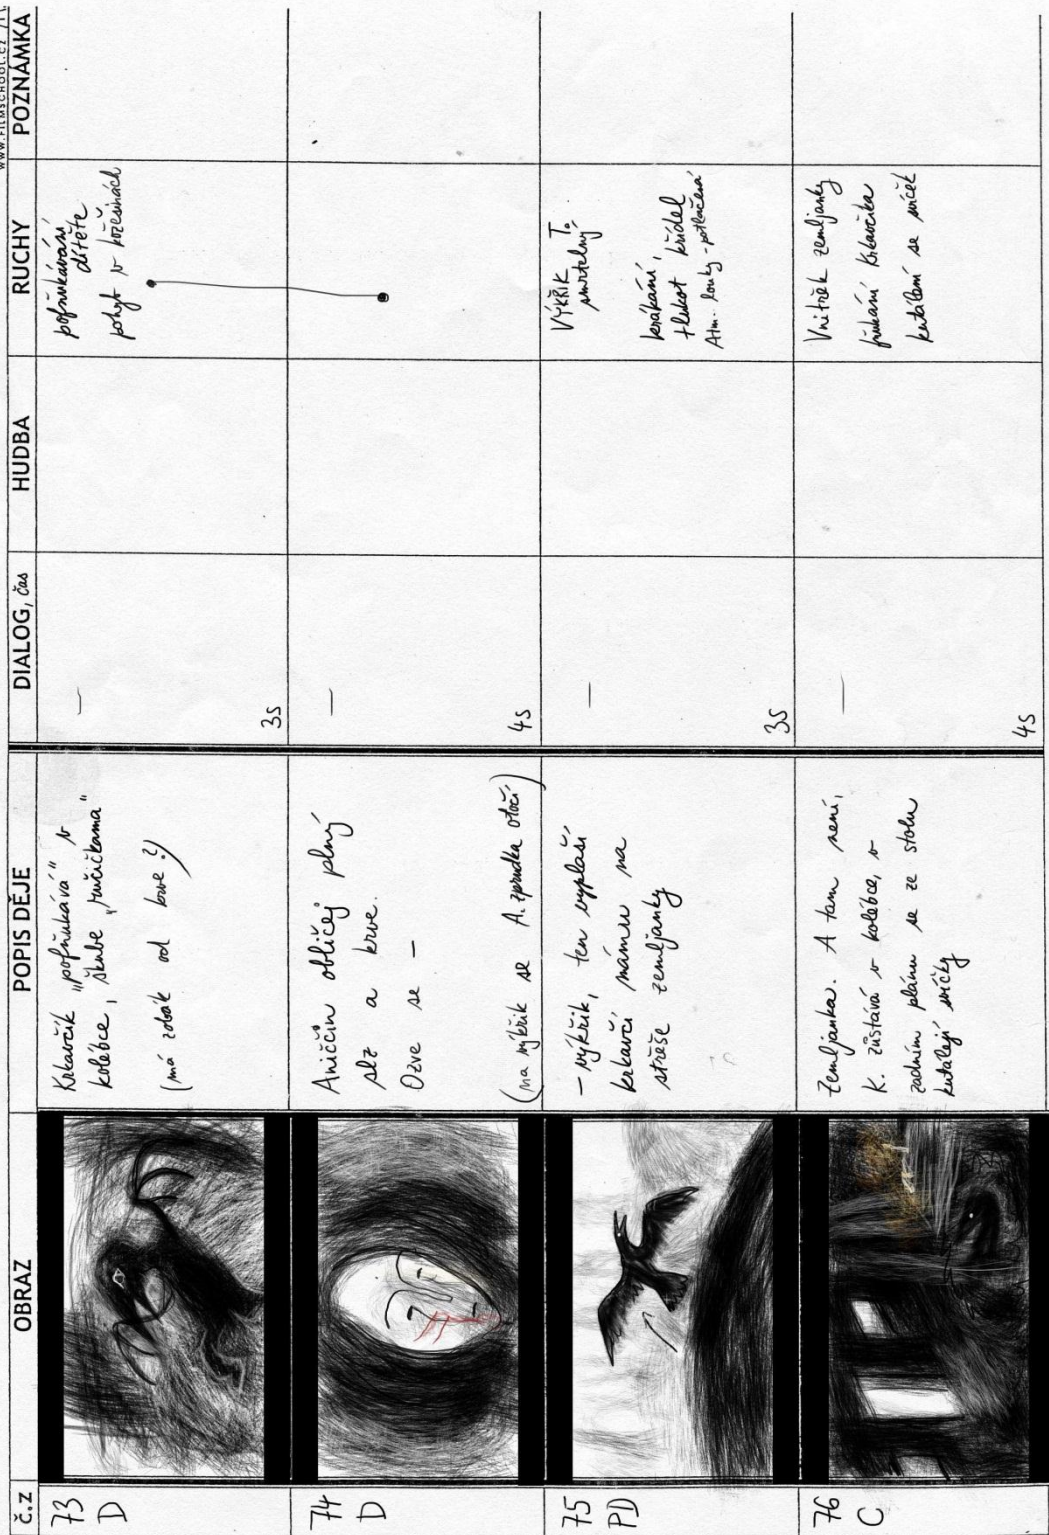 www.FILMSCHOOL.cz
Č.Z
OBRAZ
POPIS DĚJE
DIALOG, čas
HUDBA
RUCHY
POZNÁMKA
73
D
Krkavčík „pofňukává" v
kolébce, škube „ručičkama"
(má zobák od krve?)
—
3s
pofňukávání
dítěte
pohyb v kožešinách
74
D
Aniččin obličej plný
slz a krve.
Ozve se —
(na výkřik se A. zprudka otočí)
—
4s
75
PD
— výkřik, ten vyplaší
krkavčí mámu na
střeše zemljanky
—
3s
VÝKŘIK T.
smrtelný
krákání,
tlukot křídel
Atm. louky - potlačená
76
C
Zemljanka. A tam není,
K. zůstává v kolébce, v
zadním plánu se ze stolu
kutálejí svíčky
—
4s
Vnitřek zemljanky
fňukání Krkavčíka
kutálení se svíček